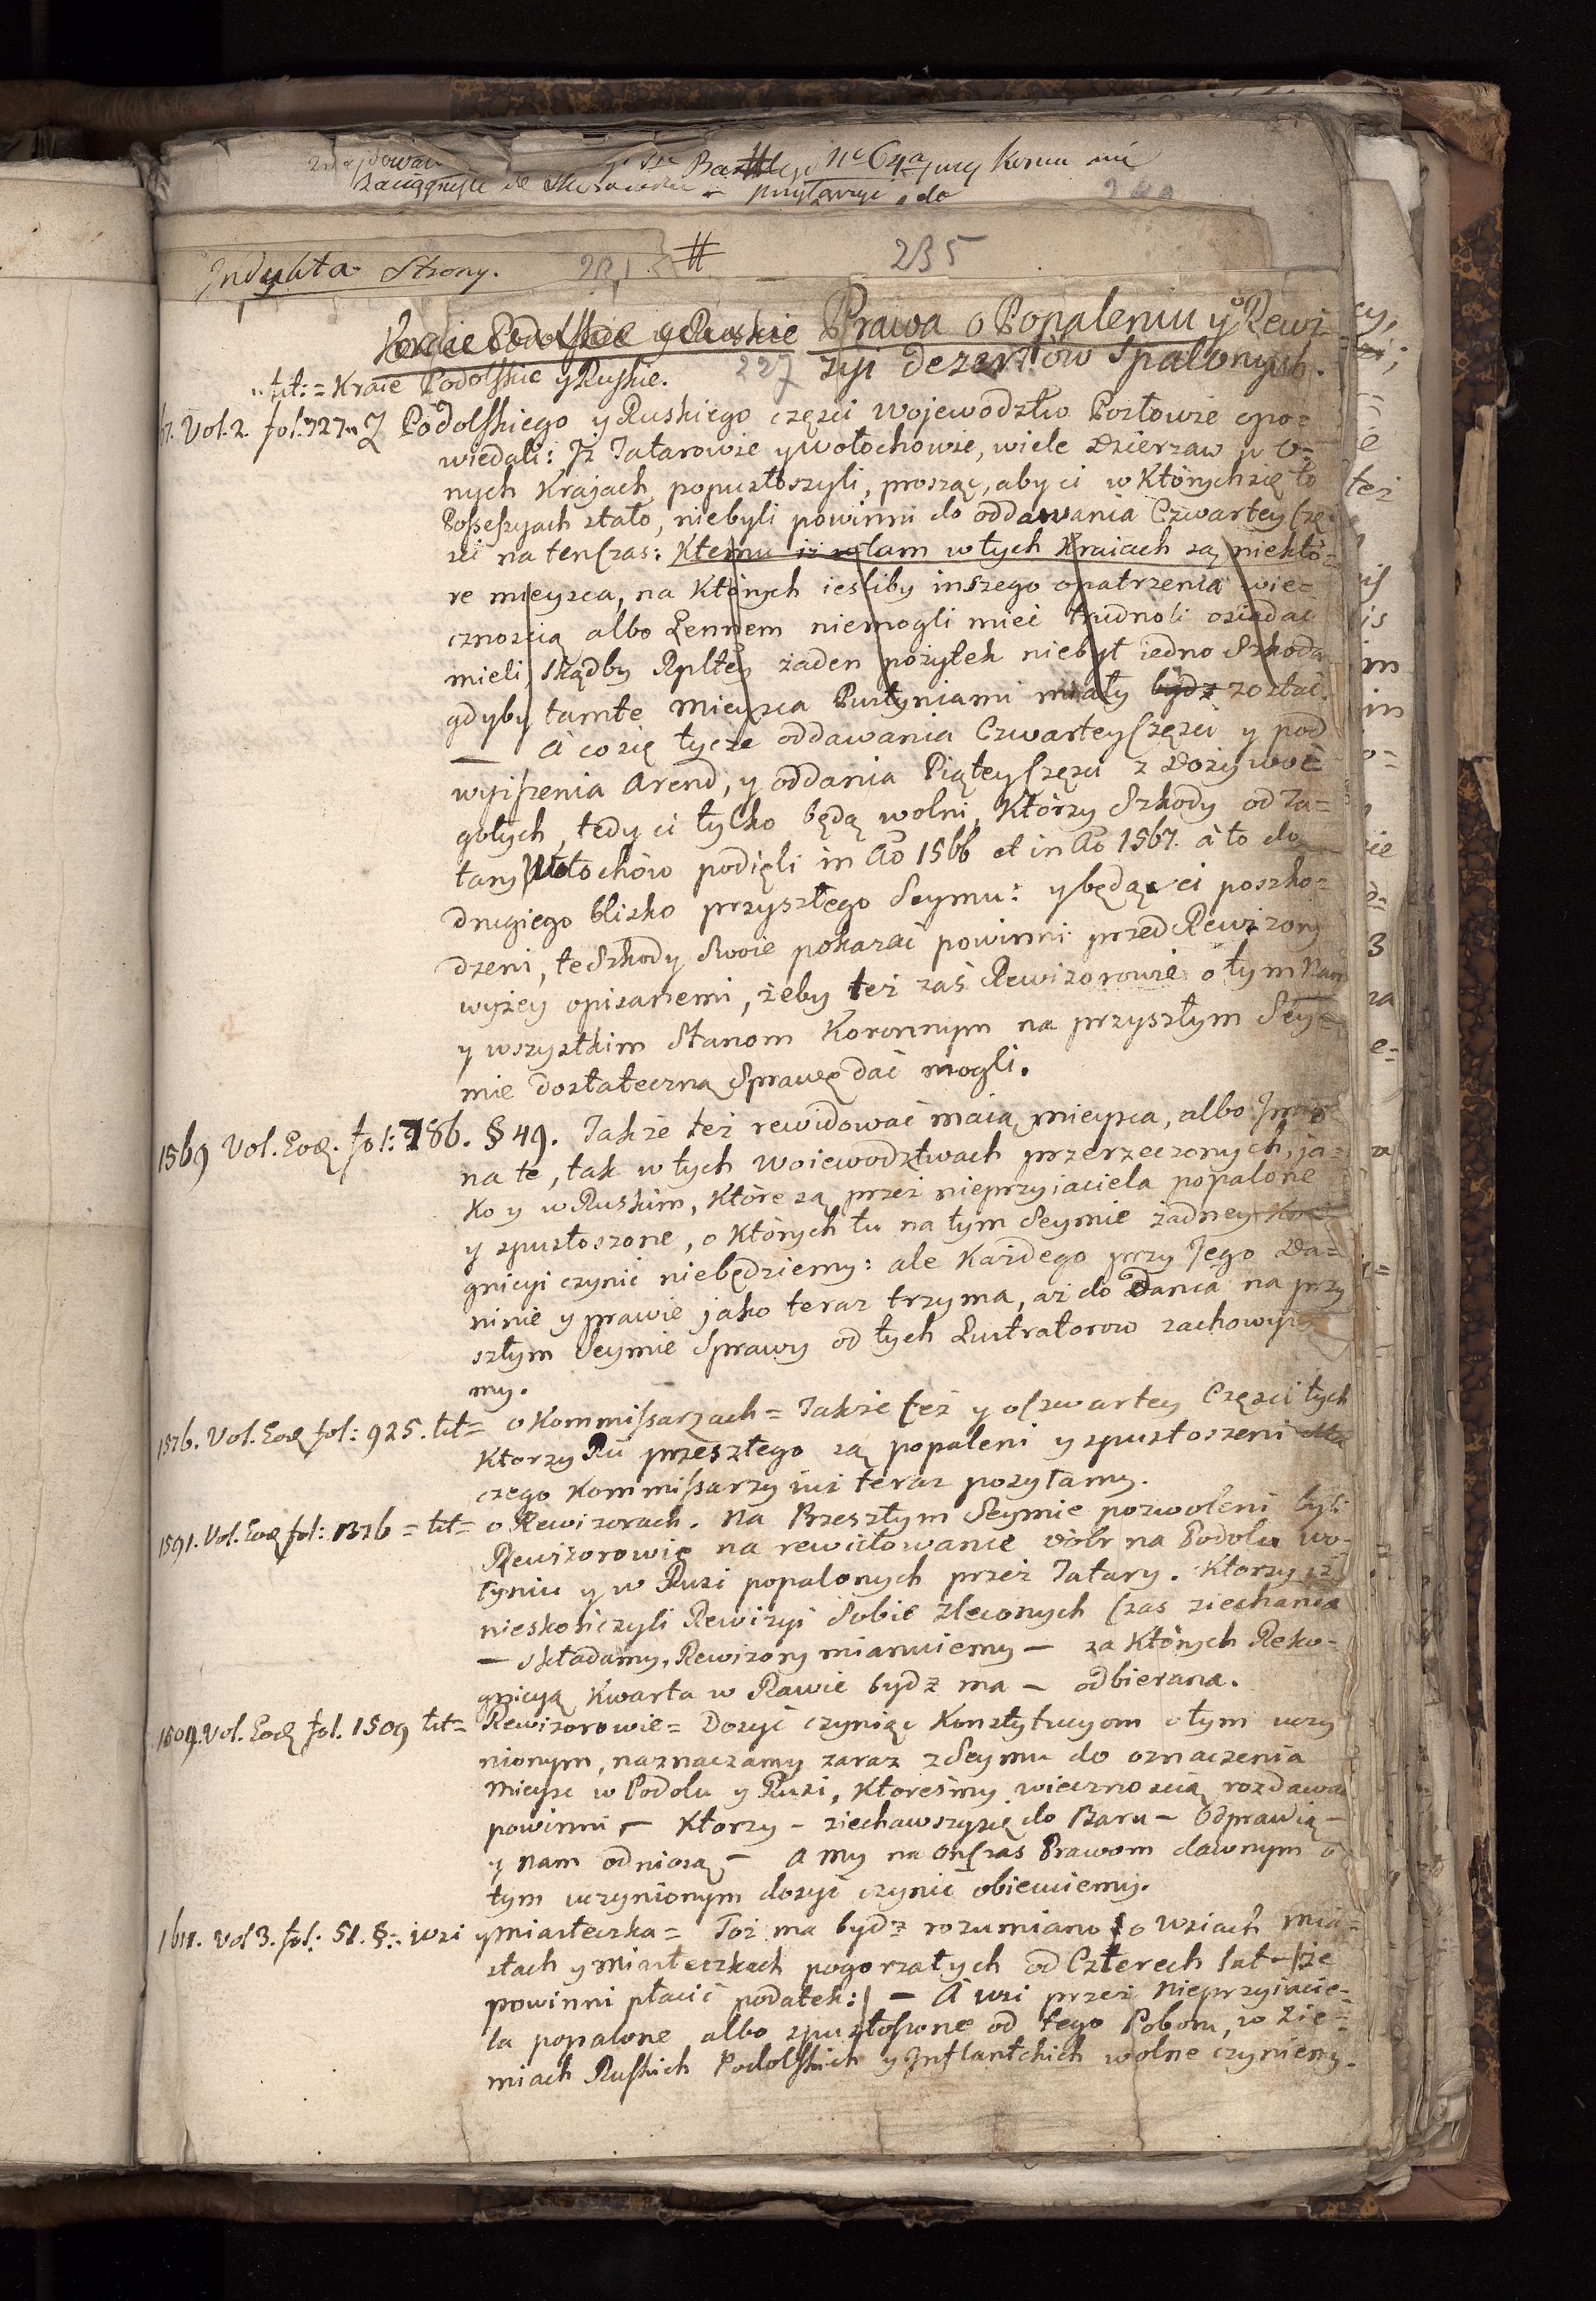 Indukta Strony.
#
235
Kraie Podolskie y Ruskie Prawa o Popaleniu y o Rewi
tit: = Kraie Podolskie y Ruskie. 227 zyi dezertów Spalonych.
7. Vol. 2. fol: 727. Z Podolskiego y Ruskiego części Wojewodztw Posłowie opo=
wiedali: Iż Tatarowie y Wołochowie, wiele Dzierzaw w O=
nych Krajach popustoszyli, prosząc, aby ci w których się to
Possessyach stało, niebyli powinni do oddawania Czwartey Czę
ści na ten czas: Ktemu iż tam w tych Kraiach są niektó=
re mieysca, na których iesliby inszego opatrzenia wie=
cznością albo Lennem niemogli mieć trudnoli osiadać
mieli, skądby Rpltey żaden pożytek niebył iedno Szkoda
gdyby tamte mieysca Pustyniami miały bydz zostać.
— A co się tycze oddawania Czwartey Części y pod
wyższenia Arend, y oddania Piątey Części z Dożywoć
gołych, tedy ci tylko będą wolni, Którzy Szkody od Ta=
tary Wołochów podięli in Ao 1566 et in Ao 1567. à to do
drugiego blisko przyszłego Seymu: y będą ci poszko=
dzeni, te Szkody Swoie pokazać powinni przed Rewizory
wyżey opisanemi, żeby też zaś Rewizorowie o tym Nam
y wszystkim Stanom Koronnym na przyszłym Sey=
mie dostateczną Sprawę dać mogli.
1569 Vol. Eod. fol: 786. § 49. Takze też rewidować maią mieysca, albo Imio
na te, tak w tych Woiewodztwach przerzeczonych, ja=
ko y w Ruskim, które są przez nieprzyiaciela popalone
y spustoszone, o których tu na tym Seymie żadney Ko
gnicyi czynić niebędziemy: ale Każdego przy Jego Da=
ninie y prawie jako teraz trzyma, aż do Dania na przy
szłym Seymie Sprawy od tych Lustratorow zachowuie
my.
1576. Vol. Eod fol: 925. tit= o Kommissarzach = Takze też y o Czwartey Części tych
Ktorzy Ru przeszłego są popaleni y spustoszeni dla
czego Kommissarzy iuż teraz posyłamy.
1591. Vol. Eod fol: 1376 = tit= o Rewizorach. Na Przeszłym Seymie pozwoleni byli
Rewizorowie na rewidowanie dóbr na Podolu Wo-
łyniu y w Rusi popalonych przez Tatary. Ktorzy iż
nieskończyli Rewizyi Sobie zleconych Czas ziechania
— składamy, Rewizory mianuiemy — za których Reko-
gnicyą Kwarta w Rawie bydz ma — odbierana.
1609. Vol. Eod fol. 1509 tit= Rewizorowie = Dosyć czyniąc Konstytucyom o tym uczy
nionym, naznaczamy zaraz z Seymu do oznaczenia
Mieysc w Podolu y Rusi, które śmy wiecznością rozdawać
powinni — Ktorzy — ziechawszysię do Baru — Odprawią —
y Nam odniosą — A My na on Czas Prawom dawnym o
tym uczynionym dosyć czynić obiecuiemy.
1611. Vol 3. fol: 51. §: wsi y miasteczka = Toż ma bydz rozumiano o Wsiach Mia=
stach y Miasteczkach pogorzałych od Czterech lat — że
powinni płacić podatek: — A wsi przez Nieprzyiacie=
la popalone albo spustoszone od tego Poboru, w Zie=
miach Ruskich Podolskich y Inflantskich wolne czyniemy.